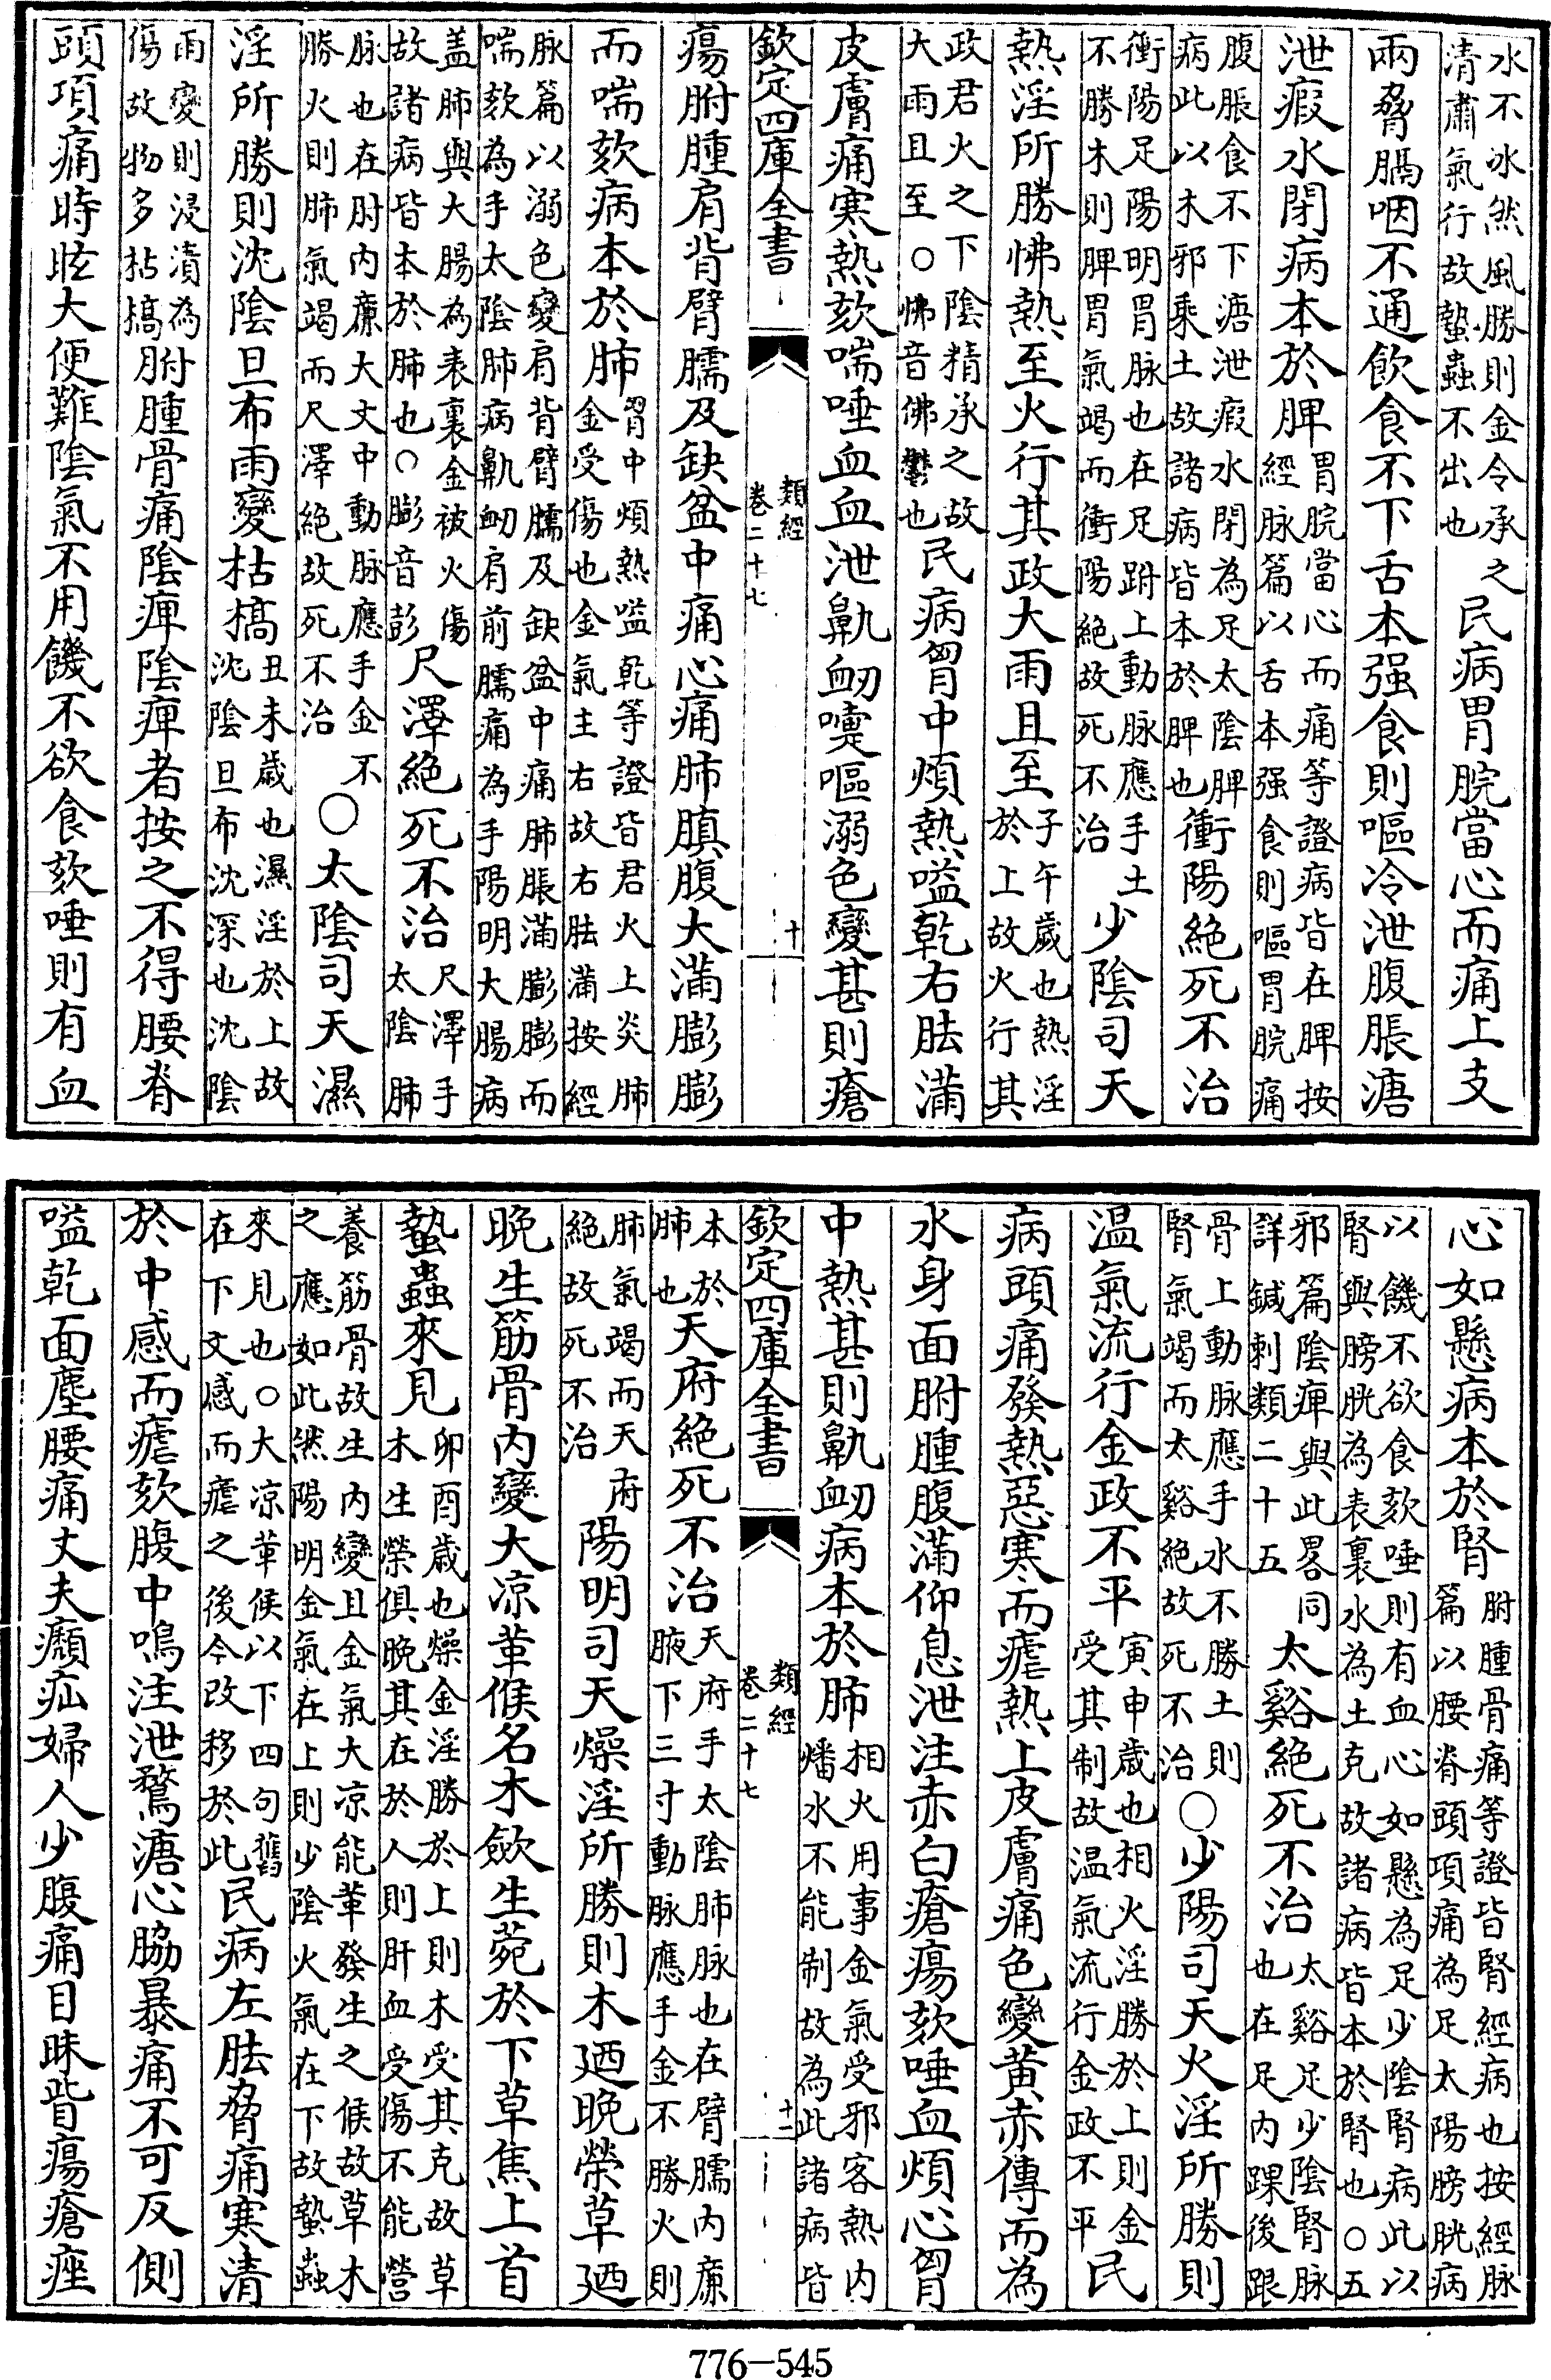 水不冰然風勝則金令承之
清肅氣行故蟄蟲不出也
民病胃脘當心而痛上支
兩脅膈咽不通飲食不下舌本强食則嘔冷泄腹脹溏
泄瘕水閉病本於脾
胃脘當心而痛等證病皆在脾按
經脉篇以舌本强食則嘔胃脘痛
腹脹食不下溏泄瘕水閉為足太陰脾
病此以木邪乘土故諸病皆本於脾也
衝陽絶死不治
衝陽足陽明胃脉也在足跗上動脉應手土
不勝木則脾胃氣竭而衝陽絶故死不治
少陰司天
熱淫所勝怫熱至火行其政大雨且至
子午歲也熱淫
於上故火行其
政君火之下陰精承之故
大雨且至○怫音佛鬱也
民病胷中煩熱嗌乾右胠滿
皮膚痛寒熱欬喘唾血血泄鼽衂嚏嘔溺色變甚則瘡
欽定四庫全書
類經
卷二十七
十
瘍胕腫肩背臂臑及缺盆中痛心痛肺䐜腹大滿膨膨
而喘欬病本於肺
胷中煩熱嗌乾等證皆君火上炎肺
金受傷也金氣主右故右胠滿按經
脉篇以溺色變肩背臂臑及缺盆中痛肺脹滿膨膨而
喘欬為手太陰肺病鼽衂肩前臑痛為手陽明大腸病
盖肺與大腸為表裏金被火傷
故諸病皆本於肺也○膨音彭
尺澤絶死不治
尺澤手
太陰肺
脉也在肘内廉大文中動脉應手金不
勝火則肺氣竭而尺澤絶故死不治
○太陰司天濕
淫所勝則沈陰旦布雨變枯槁
丑未歲也濕淫於上故
沈陰旦布沈深也沈陰
雨變則浸漬為
傷故物多枯槁
胕腫骨痛陰痺陰痺者按之不得腰脊
頭項痛時眩大便難陰氣不用饑不欲食欬唾則有血
心如懸病本於腎
胕腫骨痛等證皆腎經病也按經脉
篇以腰脊頭項痛為足太陽膀胱病
以饑不欲食欬唾則有血心如懸為足少陰腎病此以
腎與膀胱為表裏水為土克故諸病皆本於腎也○五
邪篇陰痺與此畧同
詳鍼刺類二十五
太谿絶死不治
太谿足少陰腎脉
也在足内踝後跟
骨上動脉應手水不勝土則
腎氣竭而太谿絶故死不治
○少陽司天火淫所勝則
温氣流行金政不平
寅申歲也相火淫勝於上則金
受其制故温氣流行金政不平
民
病頭痛發熱惡寒而瘧熱上皮膚痛色變黄赤傳而為
水身面胕腫腹滿仰息泄注赤白瘡瘍欬唾血煩心胷
中熱甚則鼽衂病本於肺
相火用事金氣受邪客熱内
燔水不能制故為此諸病皆
欽定四庫全書
類經
卷二十七
十一
本於
肺也
天府絶死不治
天府手太陰肺脉也在臂臑内廉
腋下三寸動脉應手金不勝火則
肺氣竭而天府
絶故死不治
陽明司天燥淫所勝則木廼晩榮草廼
晩生筋骨内變大凉革候名木歛生菀於下草焦上首
蟄蟲來見
卯酉歲也燥金淫勝於上則木受其克故草
木生榮俱晩其在於人則肝血受傷不能營
養筋骨故生内變且金氣大凉能革發生之候故草木
之應如此然陽明金氣在上則少陰火氣在下故蟄蟲
來見也○大凉革候以下四句舊
在下文感而瘧之後今改移於此
民病左胠脅痛寒清
於中感而瘧欬腹中鳴注泄鶩溏心脇暴痛不可反側
嗌乾面塵腰痛丈夫㿗疝婦人少腹痛目眛眥瘍瘡痤
776-545